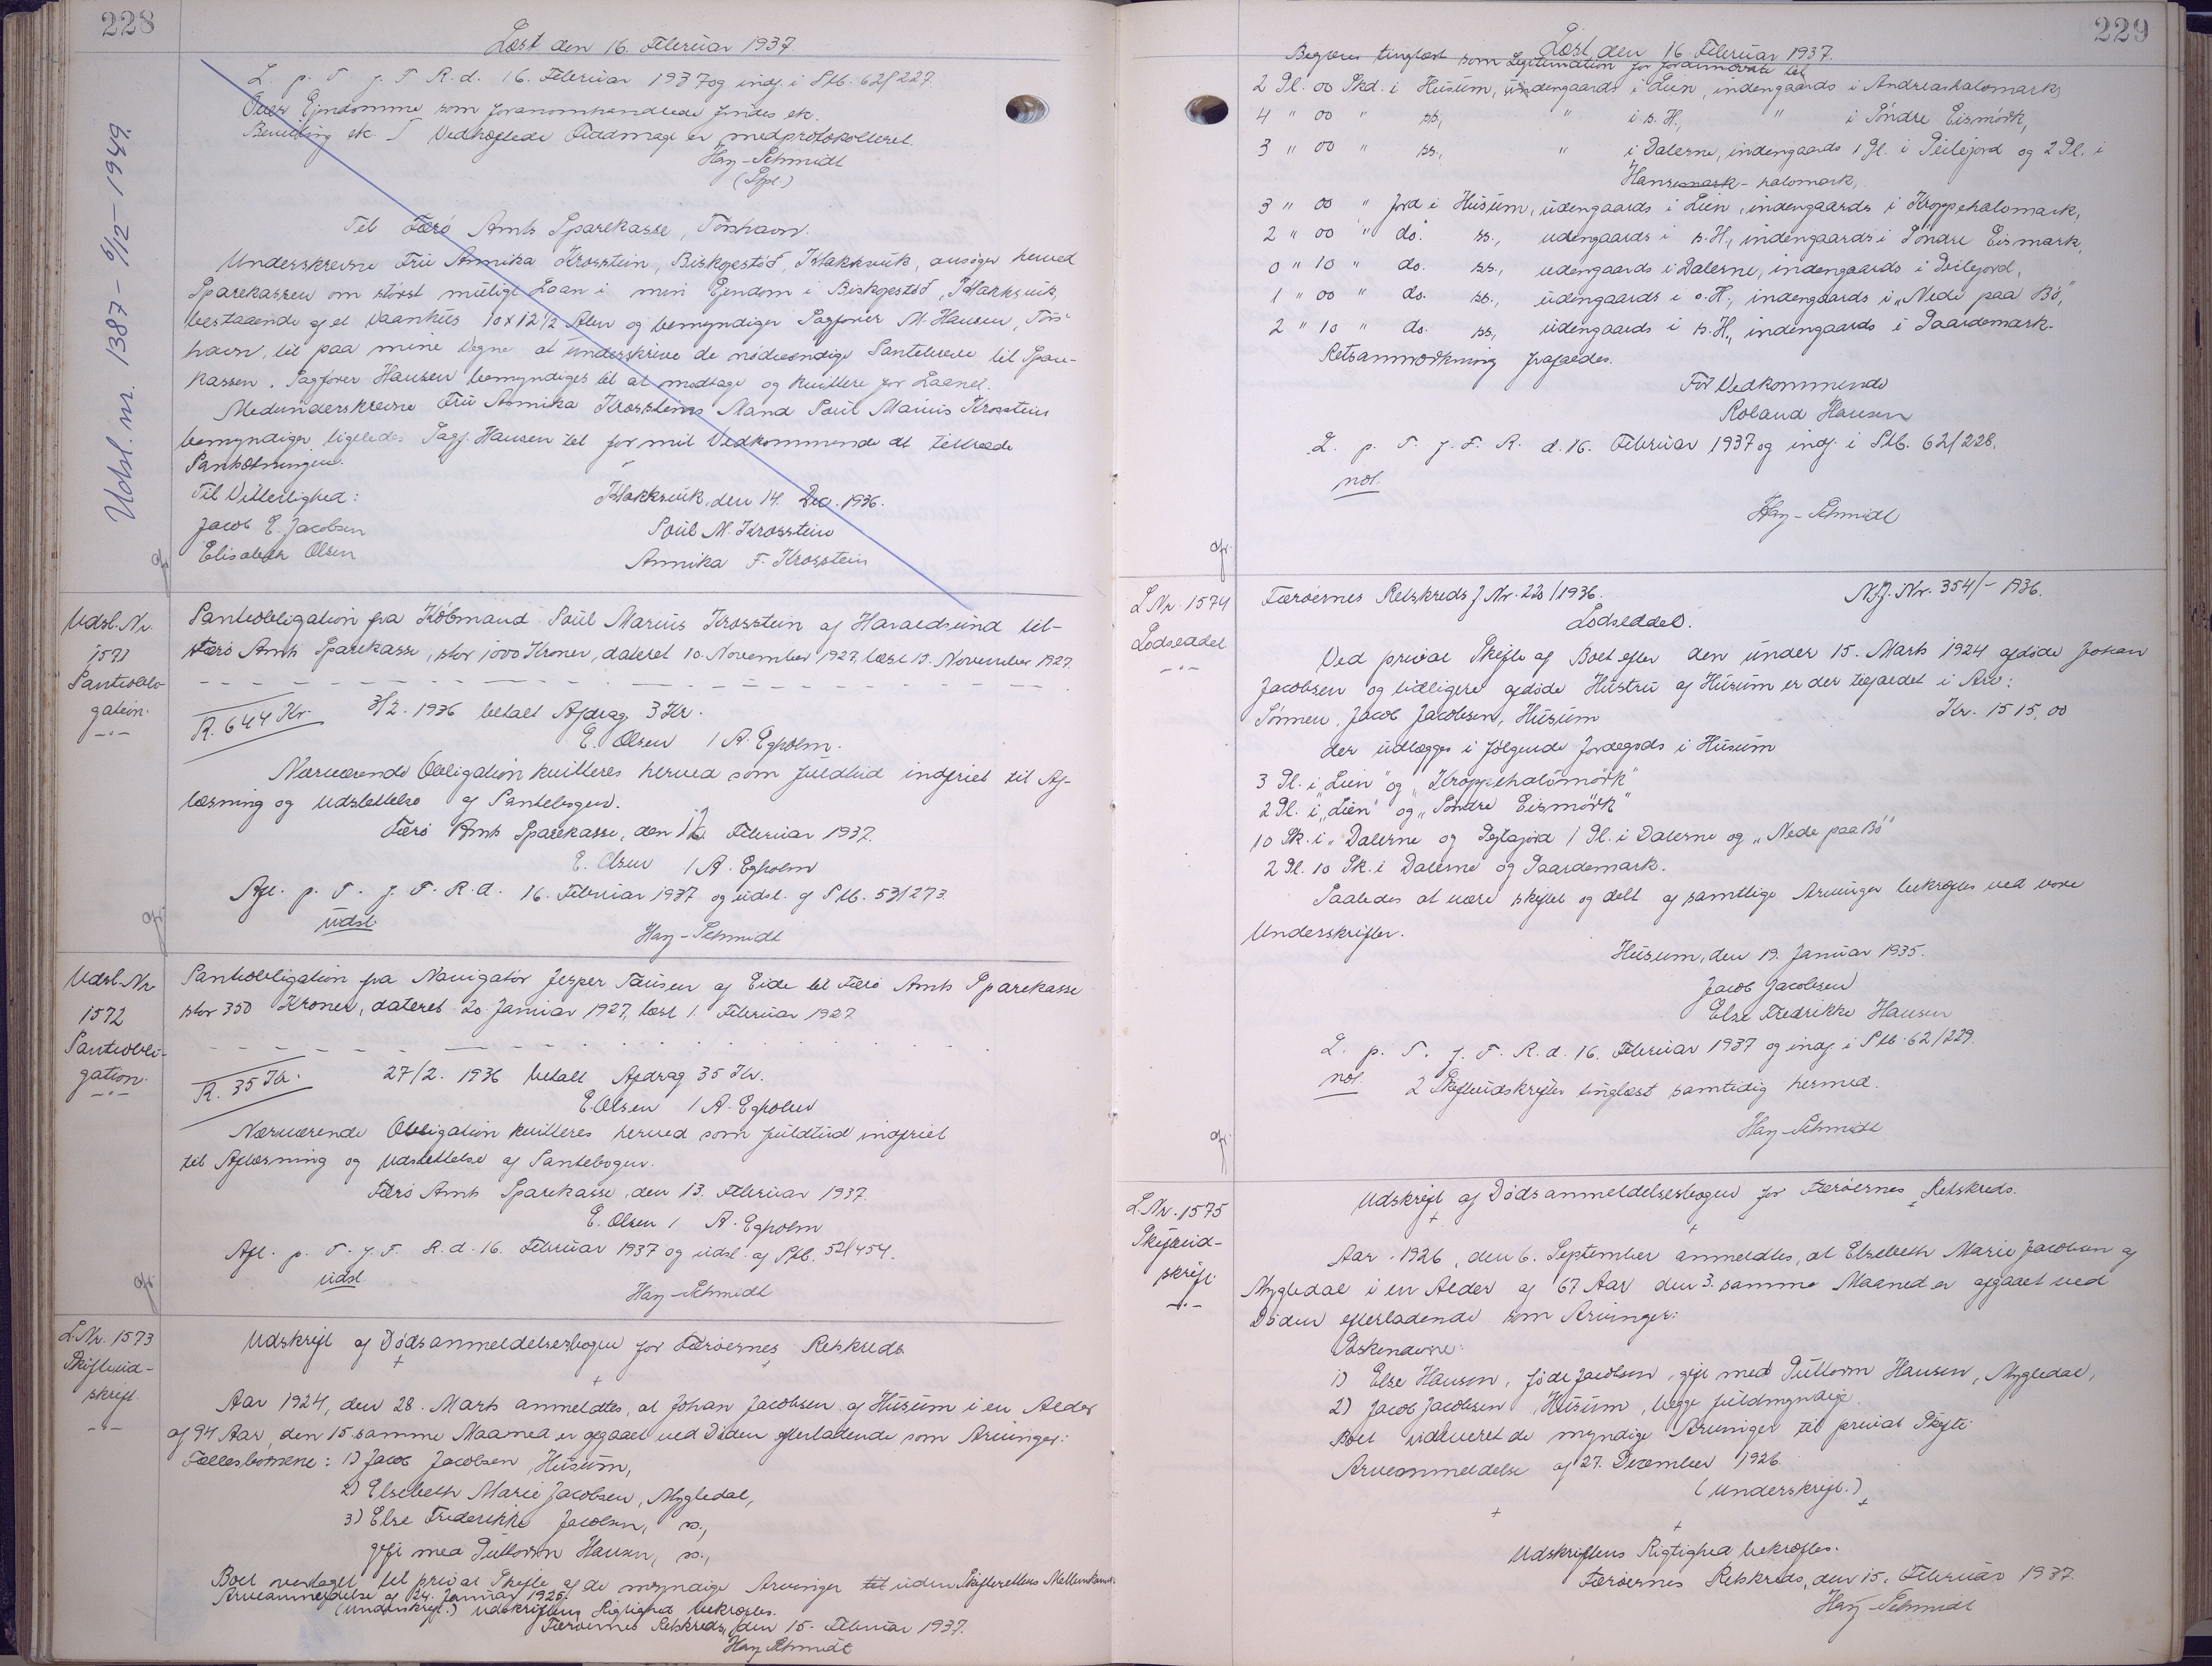 228
Læst den 16. Februar 1937.
Udsl. nr. 1387 - 6/12 - 1949.
L. p. T. f. F. R. d. 16. Februar 1937 og indf. i Ptb. 62/227.
Over Ejendomme som foranomhandlede findes ek.
Bevilling ek. Vedhæftede Fuldmagt er medprotokolleret.
Hay-Schmidt
Til Færø Amts Sparekasse, Torshavn.
Underskrevne Fru Annika Krosstein, Biskopsstød, Klakksvik, ansøger herved
Sparekassen om størst mulige Laan i min Ejendom i Biskopsstød, Klakksvik,
bestaaende af et Vaanhus 10 x 12 1/2 Alen og bemyndiger Sagfører M. Hansen, Tors-
havn, til paa mine Vegne at underskrive de nødvendige Pantebreve til Spare-
kassen. Sagfører Hansen bemyndiges til at modtage og kvittere for Laanet.
Medunderskrevne Fru Annika Krossteins Mand Poul Marius Krosstein
bemyndiger ligeledes Sagf. Hansen til for mit Vedkommende at tiltræde
Pantsætningen.
Til Vitterlighed: Klakksvik, den 14. Dec. 1936.
Jacob E. Jacobsen Poul M. Krosstein
Elisabeth Olsen Annika F. Krosstein
Udsl. Nr. 1571 Panteobligation.
Panteobligation fra Købmand Poul Marius Krosstein af Haraldsund til
Færø Amts Sparekasse, stor 1000 Kroner, dateret 10. November 1927, læst 15. November 1927.
R. 644 Kr. 3/2. 1936 betalt Afdrag 3 Kr.
E. Olsen / A. Egholm.
Nærværende Obligation kvitteres herved som fuldtud indfriet til Af-
læsning og Udslettelse af Pantebogen.
Færø Amts Sparekasse, den 12. Februar 1937.
E. Olsen / A. Egholm
Afl. p. T. f. F. R. d. 16. Februar 1937 og udsl. af Ptb. 53/273.
udsl. Hay-Schmidt
Udsl. Nr. 1572 Panteobligation.
Panteobligation fra Navigatør Jesper Pausen af Eide til Færø Amts Sparekasse
stor 350 Kroner, dateret 20. Januar 1927, læst 1. Februar 1927.
R. 35 Kr. 27/2. 1936 betalt Afdrag 35 Kr.
E. Olsen / A. Egholm
Nærværende Obligation kvitteres herved som fuldtud indfriet
til Aflæsning og Udslettelse af Pantebogen.
Færø Amts Sparekasse, den 13. Februar 1937.
E. Olsen / A. Egholm
Afl. p. T. f. F. R. d. 16. Februar 1937 og udsl. af Ptb. 52/454.
udsl. Hay-Schmidt
L. Nr. 1573 Skifteudskrift.
Udskrift af Dødsanmeldelsesbogen for Færøernes Retskreds
Aar 1924, den 28. Marts anmeldtes, at Johan Jacobsen af Husum i en Alder
af 94 Aar, den 15. samme Maaned er afgaaet ved Døden efterladende som Arvinger:
Fællesbørnene: 1) Jacob Jacobsen, Husum,
2) Elsebeth Marie Jacobsen, Mygledal,
3) Else Frederikke Jacobsen, ss.,
gift med Guttorm Hansen, ss.,
Boet overtaget til privat Skifte af de myndige Arvinger til uden Skifterettens Mellemkomst.
Arveanmeldelse af 24. Januar 1925.
(Underskrift.) Udskriftens Rigtighed bekræftes.
Færøernes Retskreds, den 15. Februar 1937.
Hay Schmidt
229
Læst den 16. Februar 1937.
Begæres tinglæst som Legitimation for forannævnte til
2 Gl. 00 Skd. i Husum, udengaards i Lien, indengaards i Andreashalomark,
4 " 00 " ss., " i s. H., " i Søndre Eismørk,
3 " 00 " ss., " i Dalerne, indengaards 1 Gl. i Peilejord og 2 Gl. i
Hansemark-halomark,
3 " 00 " Jord i Husum, udengaards i Lien, indengaards i Kroppehalomark,
2 " 00 " do. ss., udengaards i s. H., indengaards i Søndre Eismark,
0 " 10 " do. ss., udengaards i Dalerne, indengaards i Peilejord,
1 " 00 " do. ss., udengaards i s. H., indengaards i "Nede paa Bø",
2 " 10 " do. ss., udengaards i s. H., indengaards i Gaardemark.
Retsanmærkning frafaldes.
For Vedkommende
Roland Hansen
L. p. T. f. F. R. d. 16. Februar 1937 og indf. i Ptb. 62/228.
not.
Hay-Schmidt
L. Nr. 1574 Lodseddel
Færøernes Retskreds J. Nr. 220/1936. N.J. Nr. 354/- 1936.
Lodseddel.
Ved privat Skifte af Boet efter den under 15. Marts 1924 afdøde Johan
Jacobsen og tidligere afdøde Hustru af Husum er der tilfaldet i Arv:
Sønnen, Jacob Jacobsen, Husum Kr. 1515,00
der udlægges i følgende Jordegods i Husum
3 Gl. i "Lien" og "Kroppehalomørk"
2 Gl. i "Lien" og "Søndre Eismørk"
10 Sk. i "Dalerne og Pejlajord 1 Gl. i Dalerne og "Nede paa Bø"
2 Gl. 10 Sk. i Dalerne og Gaardemark.
Saaledes at være skiftet og delt af samtlige Arvinger bekræftes ved vore
Underskrifter.
Husum, den 19. Januar 1935.
Jacob Jacobsen
Else Fredrikke Hansen
L. p. T. f. F. R. d. 16. Februar 1937 og indf. i Ptb. 62/229.
not. 2 Skifteudskrifter tinglæst samtidig hermed.
Hay-Schmidt
L. Nr. 1575 Skifteudskrift.
Udskrift af Dødsanmeldelsesbogen for Færøernes Retskreds.
Aar 1926, den 6. September anmeldtes, at Elsebeth Marie Jacobsen af
Mygledal i en Alder af 67 Aar den 3. samme Maaned er afgaaet ved
Døden efterladende som Arvinger:
Søskendene:
1) Else Hansen, født Jacobsen, gift med Guttorm Hansen, Mygledal,
2) Jacob Jacobsen, Husum, begge fuldmyndige.
Boet udleveret de myndige Arvinger til privat Skifte
Arveanmeldelse af 27. December 1926.
(Underskrift.)
Udskriftens Rigtighed bekræftes.
Færøernes Retskreds, den 15. Februar 1937.
Hay-Schmidt